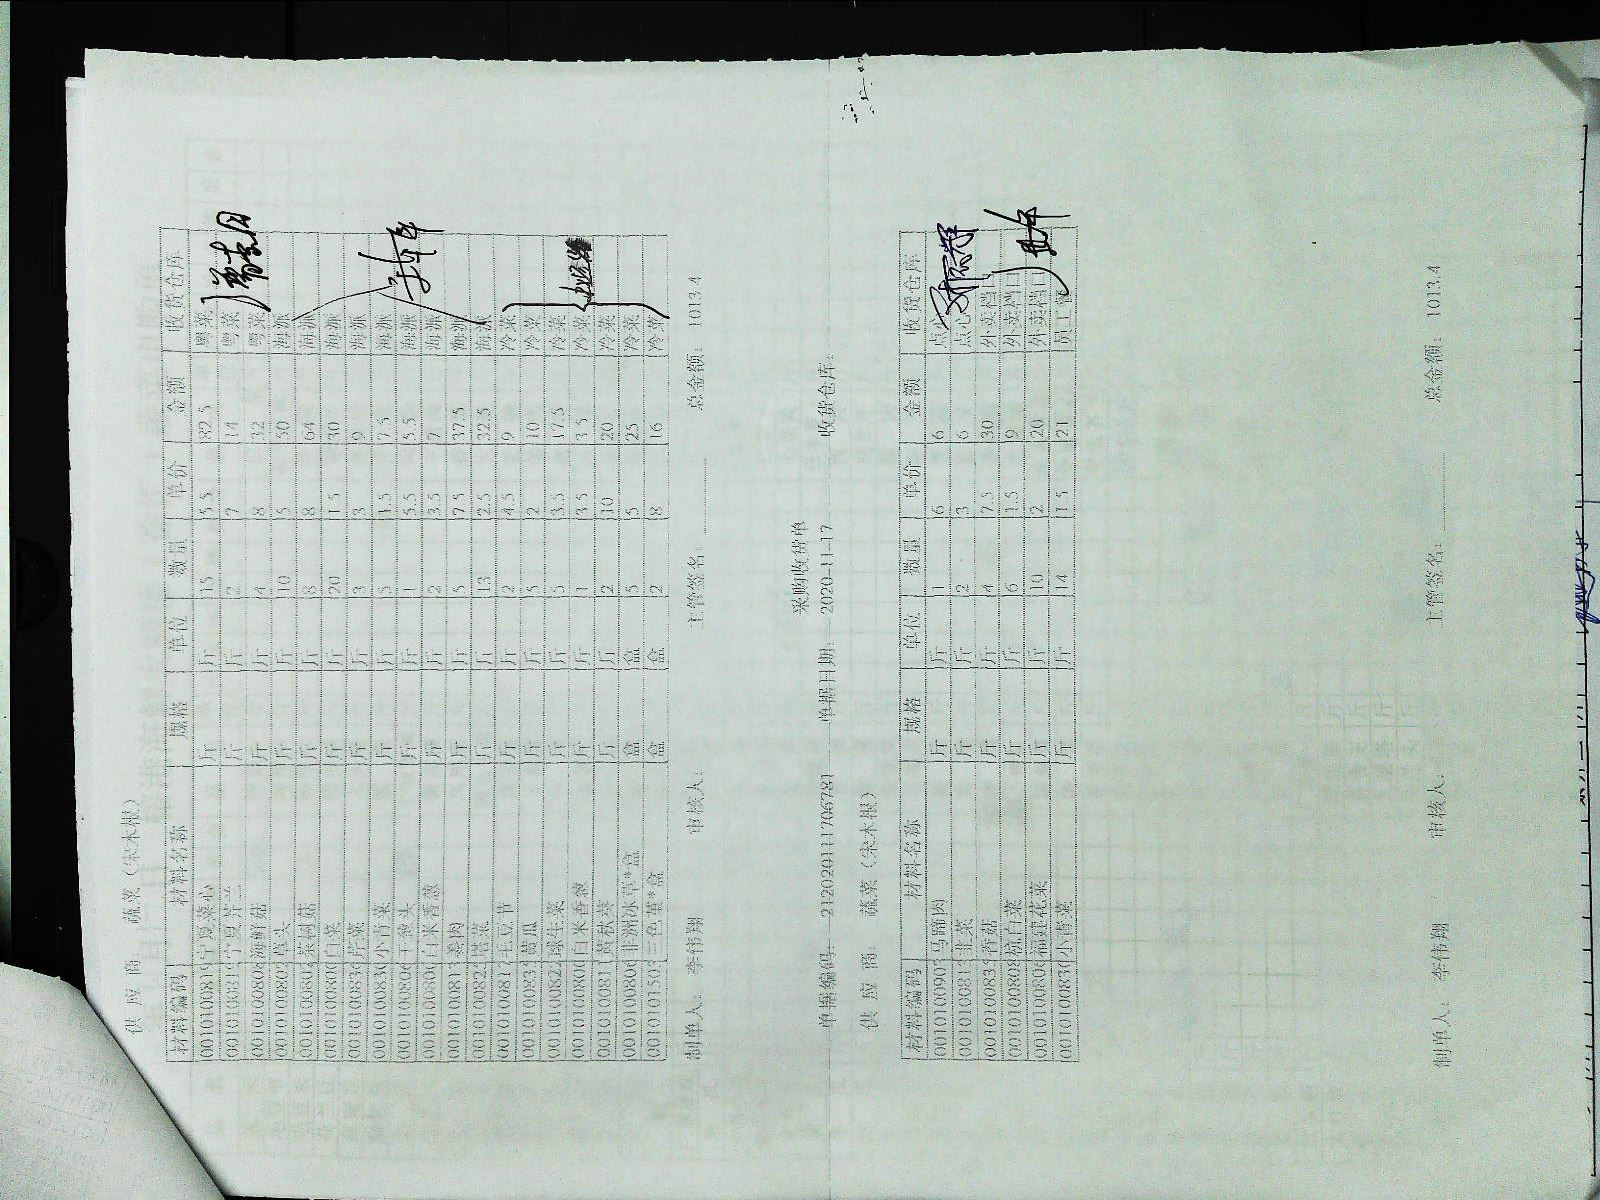 供 应 商 蔬菜（宋木根）
材料编码 材料名称 规格 单位 数量 单价 金额 收货仓库
001010081 宁夏菜心 斤 斤 15 5.5 82.5 粤菜
宁夏芥兰 斤 斤 2 7 14 粤菜
001010080 海鲜菇 斤 斤 4 8 32 粤菜
001010080 草头 斤 斤 10 5 50 海派
001010080 茶树菇 斤 斤 8 8 64 海派
001010080 白菜 斤 斤 20 1.5 30 海派
001010083 芹菜 斤 斤 3 3 9 海派
001010083 小青菜 斤 斤 5 1.5 7.5 海派
001010080 干葱头 斤 斤 1 5.5 5.5 海派
001010080 白米香葱 斤 斤 2 3.5 7 海派
001010081 姜肉 斤 斤 5 7.5 37.5 海派
001010082 塔菜 斤 斤 13 2.5 32.5 海派
001010081 毛豆节 斤 斤 2 4.5 9 冷菜
001010083 黄瓜 斤 斤 5 2 10 冷菜
001010082 球生菜 斤 斤 5 3.5 17.5 冷菜
001010080 白米香葱 斤 斤 1 3.5 3.5 冷菜
001010081 黄秋葵 斤 斤 2 10 20 冷菜
001010080 非洲冰草*盒 盒 盒 5 5 25 冷菜
001010150 三色堇*盒 盒 盒 2 8 16 冷菜
制单人： 李伟翔 审核人： 主管签名： 总金额： 1013.4
采购收货单
单据编码： 212020111706781 单据日期： 2020-11-17 收货仓库：
供 应 商： 蔬菜（宋木根）
材料编码 材料名称 规格 单位 数量 单价 金额 收货仓库
001010090 马蹄肉 斤 斤 1 6 6 点心
001010081 韭菜 斤 斤 2 3 6 点心
001010083 香菇 斤 斤 4 7.5 30 外卖档口
001010080 杭白菜 斤 斤 6 1.5 9 外卖档口
001010080 福建花菜 斤 斤 10 2 20 外卖档口
001010083 小青菜 斤 斤 14 1.5 21 员工餐
制单人： 李伟翔 审核人： 主管签名： 总金额： 1013.4